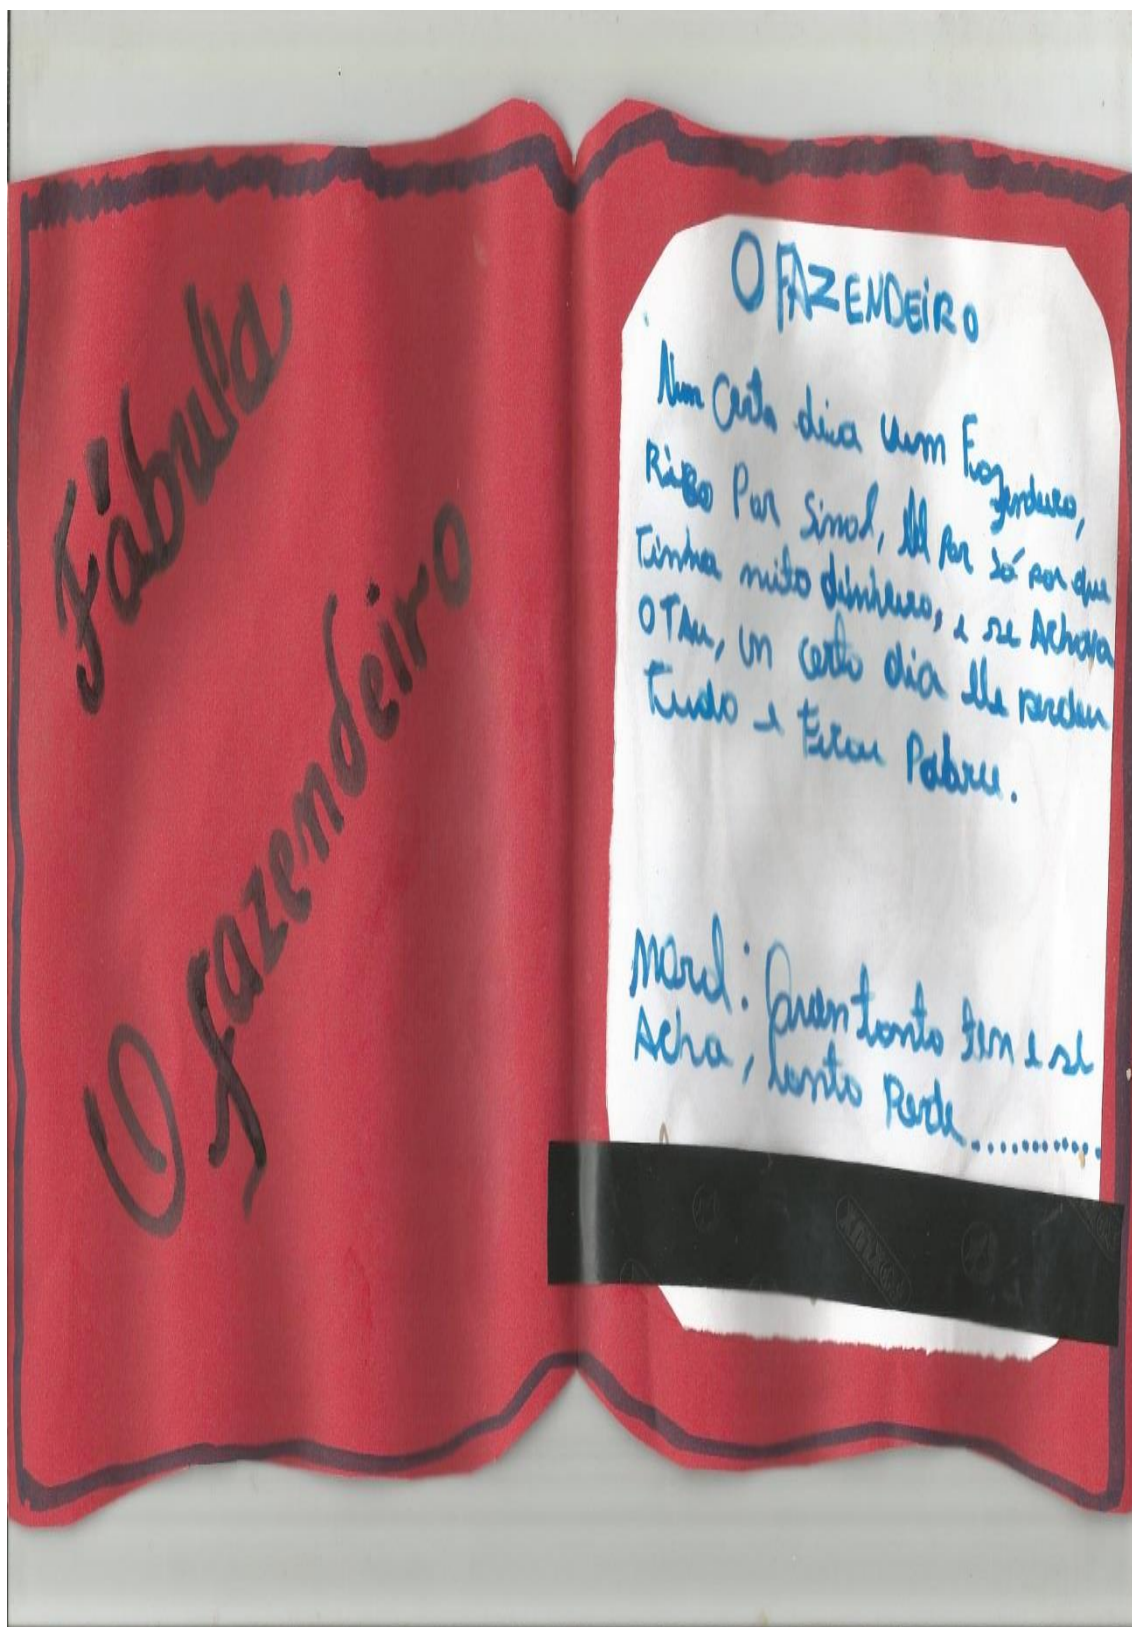 Fábula
O fazendeiro
O FAZENDEIRO
Num certo dia um Fazendeiro,
Rico Por Sinal, ele por só por que
Tinha muito dinheiro, e se Achava
O TAU, un certo dia ele perdeu
Tudo e Ficou Pobre.
Moral: Quem tanto tem e se
Acha, tanto Perde............